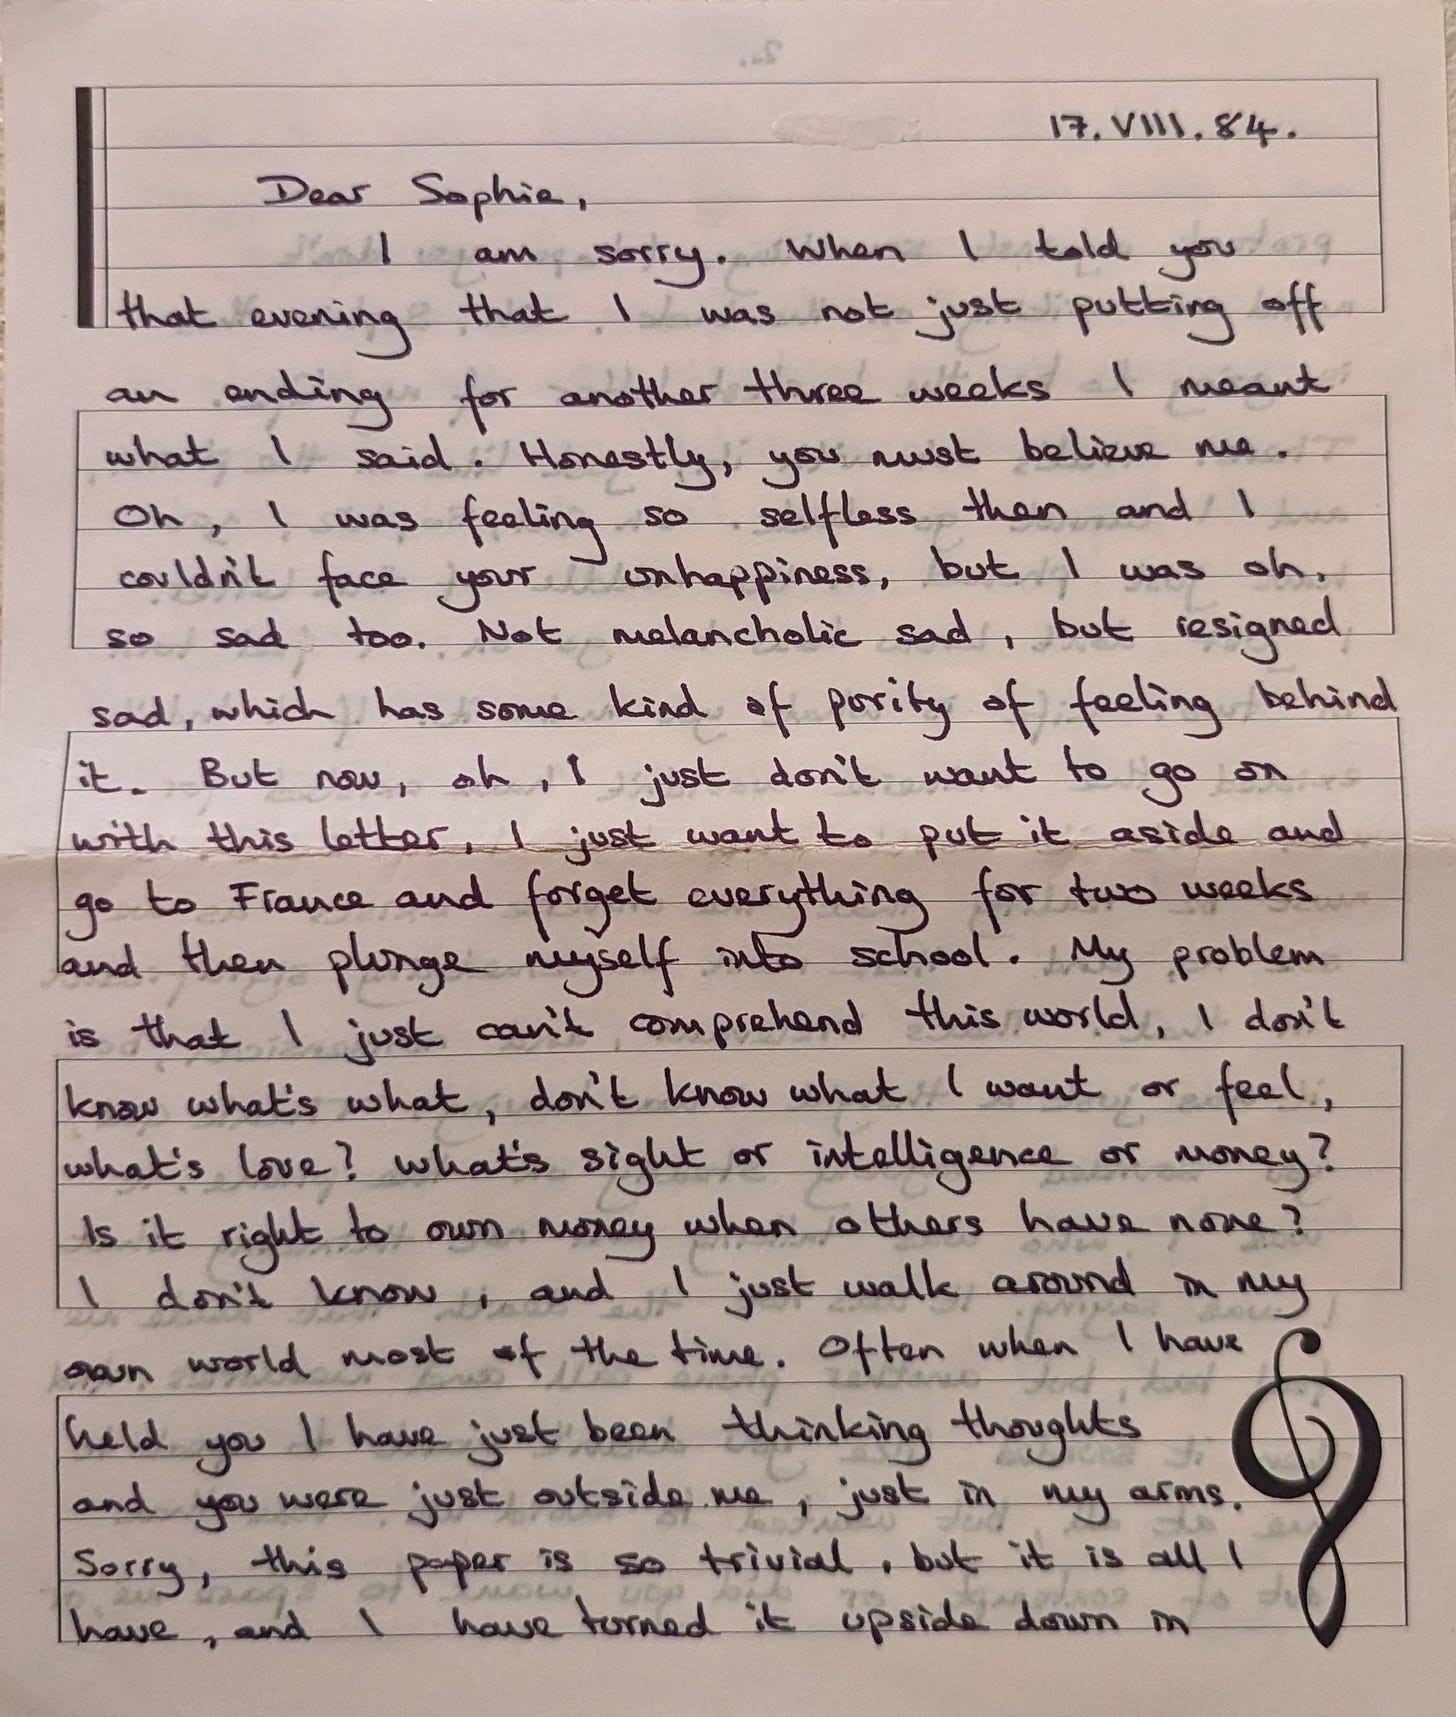 17.VIII.84.
Dear Sophie,
I am sorry. When I told you
that evening that I was not just putting off
an ending for another three weeks I meant
what I said. Honestly, you must believe me.
Oh, I was feeling so selfless then and I
couldn't face your unhappiness, but I was oh,
so sad too. Not melancholic sad, but resigned
sad, which has some kind of purity of feeling behind
it. But now, oh, I just don't want to go on
with this letter, I just want to put it aside and
go to France and forget everything for two weeks
and then plunge myself into school. My problem
is that I just can't comprehend this world, I don't
know what's what, don't know what I want or feel,
what's love? What's sight or intelligence or money?
Is it right to own money when others have none?
I don't know, and I just walk around in my
own world most of the time. Often when I have
held you I have just been thinking thoughts
and you were just outside me, just in my arms.
Sorry, this paper is so trivial, but it is all I
have, and I have turned it upside down in